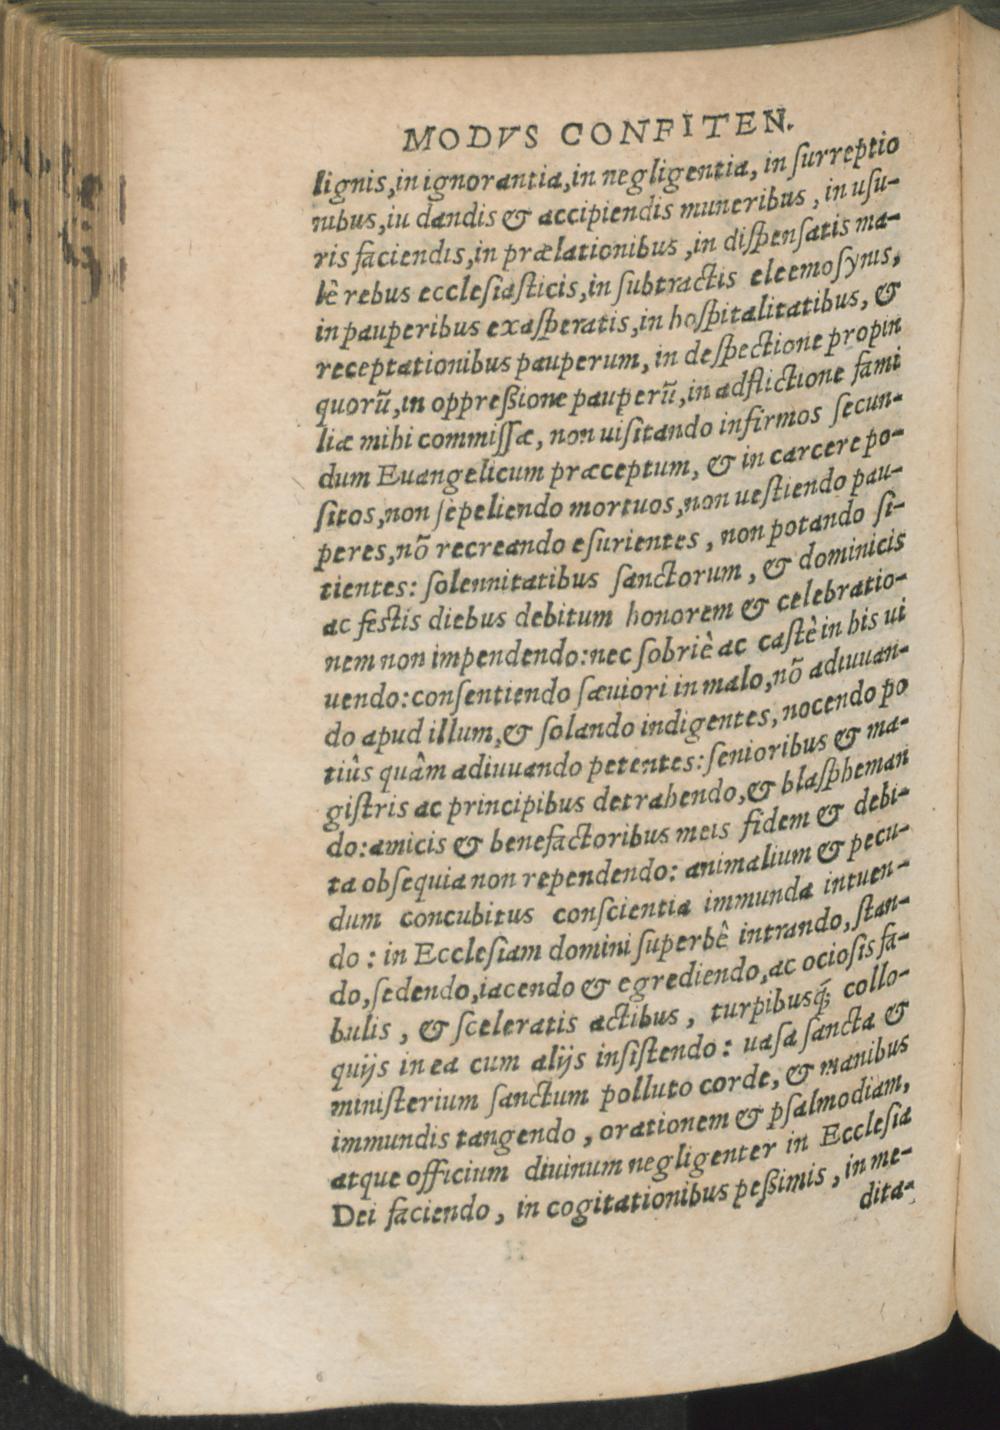 MODVS CONFITEN.
lignis, in ignorantia, in negligentia, in surreptio
nibus, iu dandis & accipiendis muneribus, in usu-
ris faciendis, in prælationibus, in dispensatis ma-
lê rebus ecclesiasticis, in subtractis eleemosynis,
in pauperibus exasperatis, in hospitalitatibus, &
receptationibus pauperum, in despectione propin
quorũ, in oppreßione pauperũ, in adflictione fami
liæ mihi commissæ, non uisitando infirmos secun-
dum Euangelicum præceptum, & in carcere po-
sitos, non sepeliendo mortuos, non uestiendo pau-
peres, nõ recreando esurientes, non potando si-
tientes: solennitatibus sanctorum, & dominicis
ac festis diebus debitum honorem & celebratio-
nem non impendendo: nec sobriè ac castè in his ui
uendo: consentiendo sæuiori in malo, nõ adiuuan-
do apud illum, & solando indigentes, nocendo po
tiûs quâm adiuuando petentes: senioribus & ma-
gistris ac principibus detrahendo, & blaspheman
do: amicis & benefactoribus meis fidem & debi-
ta obsequia non rependendo: animalium & pecu-
dum concubitus conscientia immunda intuen-
do: in Ecclesiam domini superbê intrando, stan-
do, sedendo, iacendo & egrediendo, ac ociosis fa-
bulis, & sceleratis actibus, turpibusq́; collo-
quijs in ea cum alijs insistendo: uasa sancta &
ministerium sanctum polluto corde, & manibus
immundis tangendo, orationem & psalmodiam,
atque officium diuinum negligenter in Ecclesia
Dei faciendo, in cogitationibus peßimis, in me-
dita-